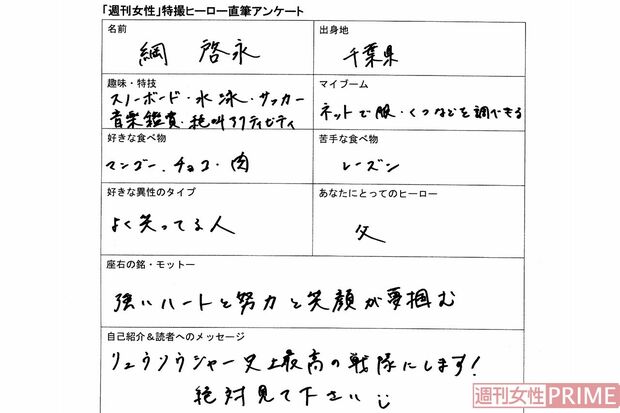 「週刊女性」特撮ヒーロー直筆アンケート
名前
綱 啓永
出身地
千葉県
趣味・特技
スノーボード・水泳・サッカー
音楽鑑賞・絶叫アクティビティ
マイブーム
ネットで服・くつなどを調べること
好きな食べ物
マンゴー、チョコ・肉
苦手な食べ物
レーズン
好きな異性のタイプ
よく笑ってる人
あなたにとってのヒーロー
父
座右の銘・モットー
強いハートと努力と笑顔が夢掴む
自己紹介&読者へのメッセージ
リュウソウジャー史上最高の戦隊にします!
絶対見て下さい
週刊女性PRIME